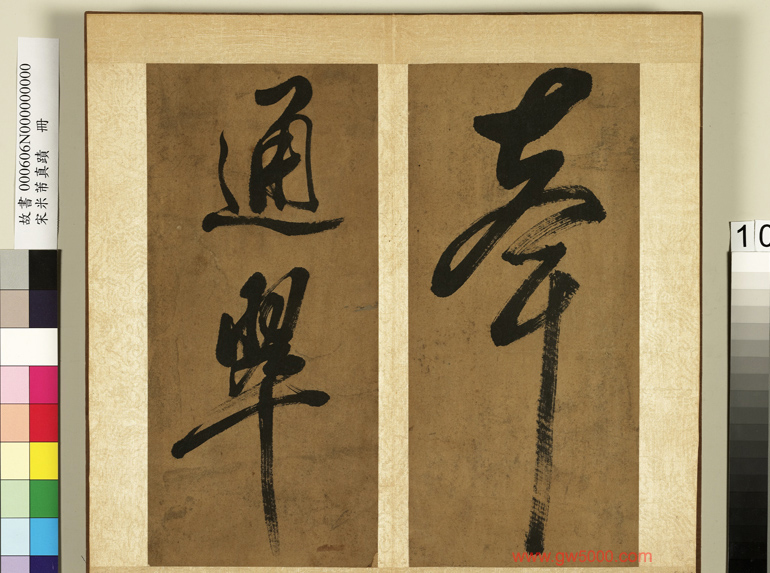 奉
通
故書 000606N000000000
宋米芾真蹟 冊
10
www.gw5000.com